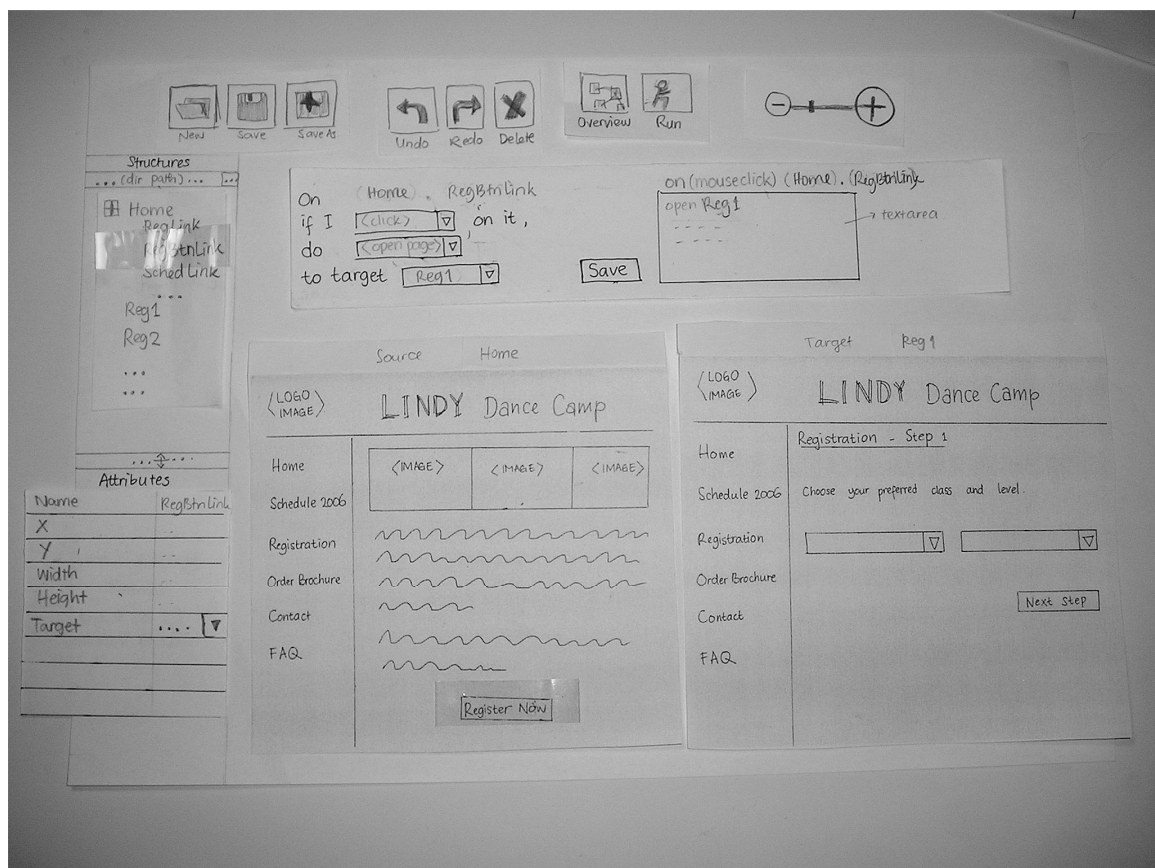 New
Save
Save As
Undo
Redo
Delete
Overview
Run
Structures
... (dir path) ... ...
Home
RegLink
RegBtnLink
SchedLink
...
Reg1
Reg2
...
...
Attributes
Name RegBtnLink
X ..
Y ..
Width ..
Height ..
Target ....
On (Home) . RegBtnLink
if I <click> on it,
do <open page>,
to target Reg1
Save
on (mouseclick) (Home). (RegBtnLink
open Reg1
- - - -
- - - -
→ textarea
Source Home
<LOGO IMAGE>
LINDY Dance Camp
Home
Schedule 2006
Registration
Order Brochure
Contact
FAQ
<IMAGE> <IMAGE> <IMAGE>
Register Now
Target Reg 1
<LOGO IMAGE>
LINDY Dance Camp
Home
Schedule 2006
Registration
Order Brochure
Contact
FAQ
Registration - Step 1
Choose your preferred class and level.
Next Step